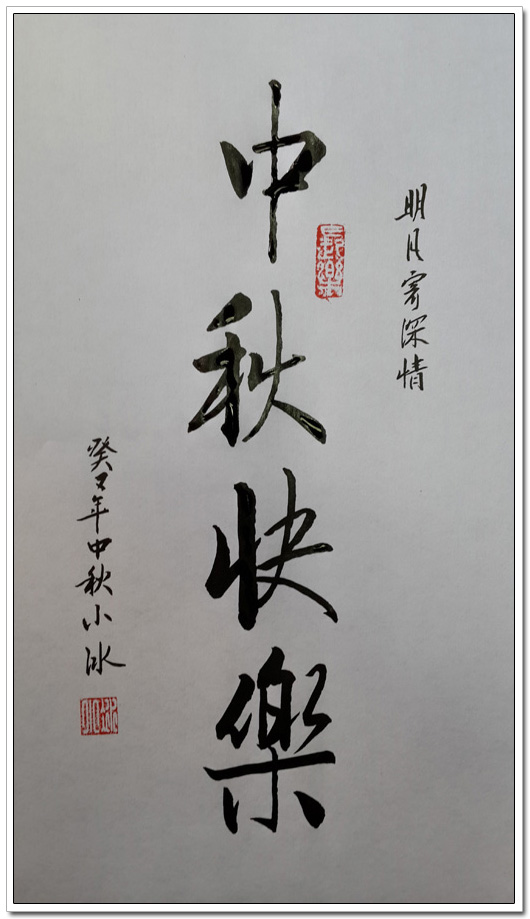 明月寄深情
中秋快樂
癸年中秋小冰